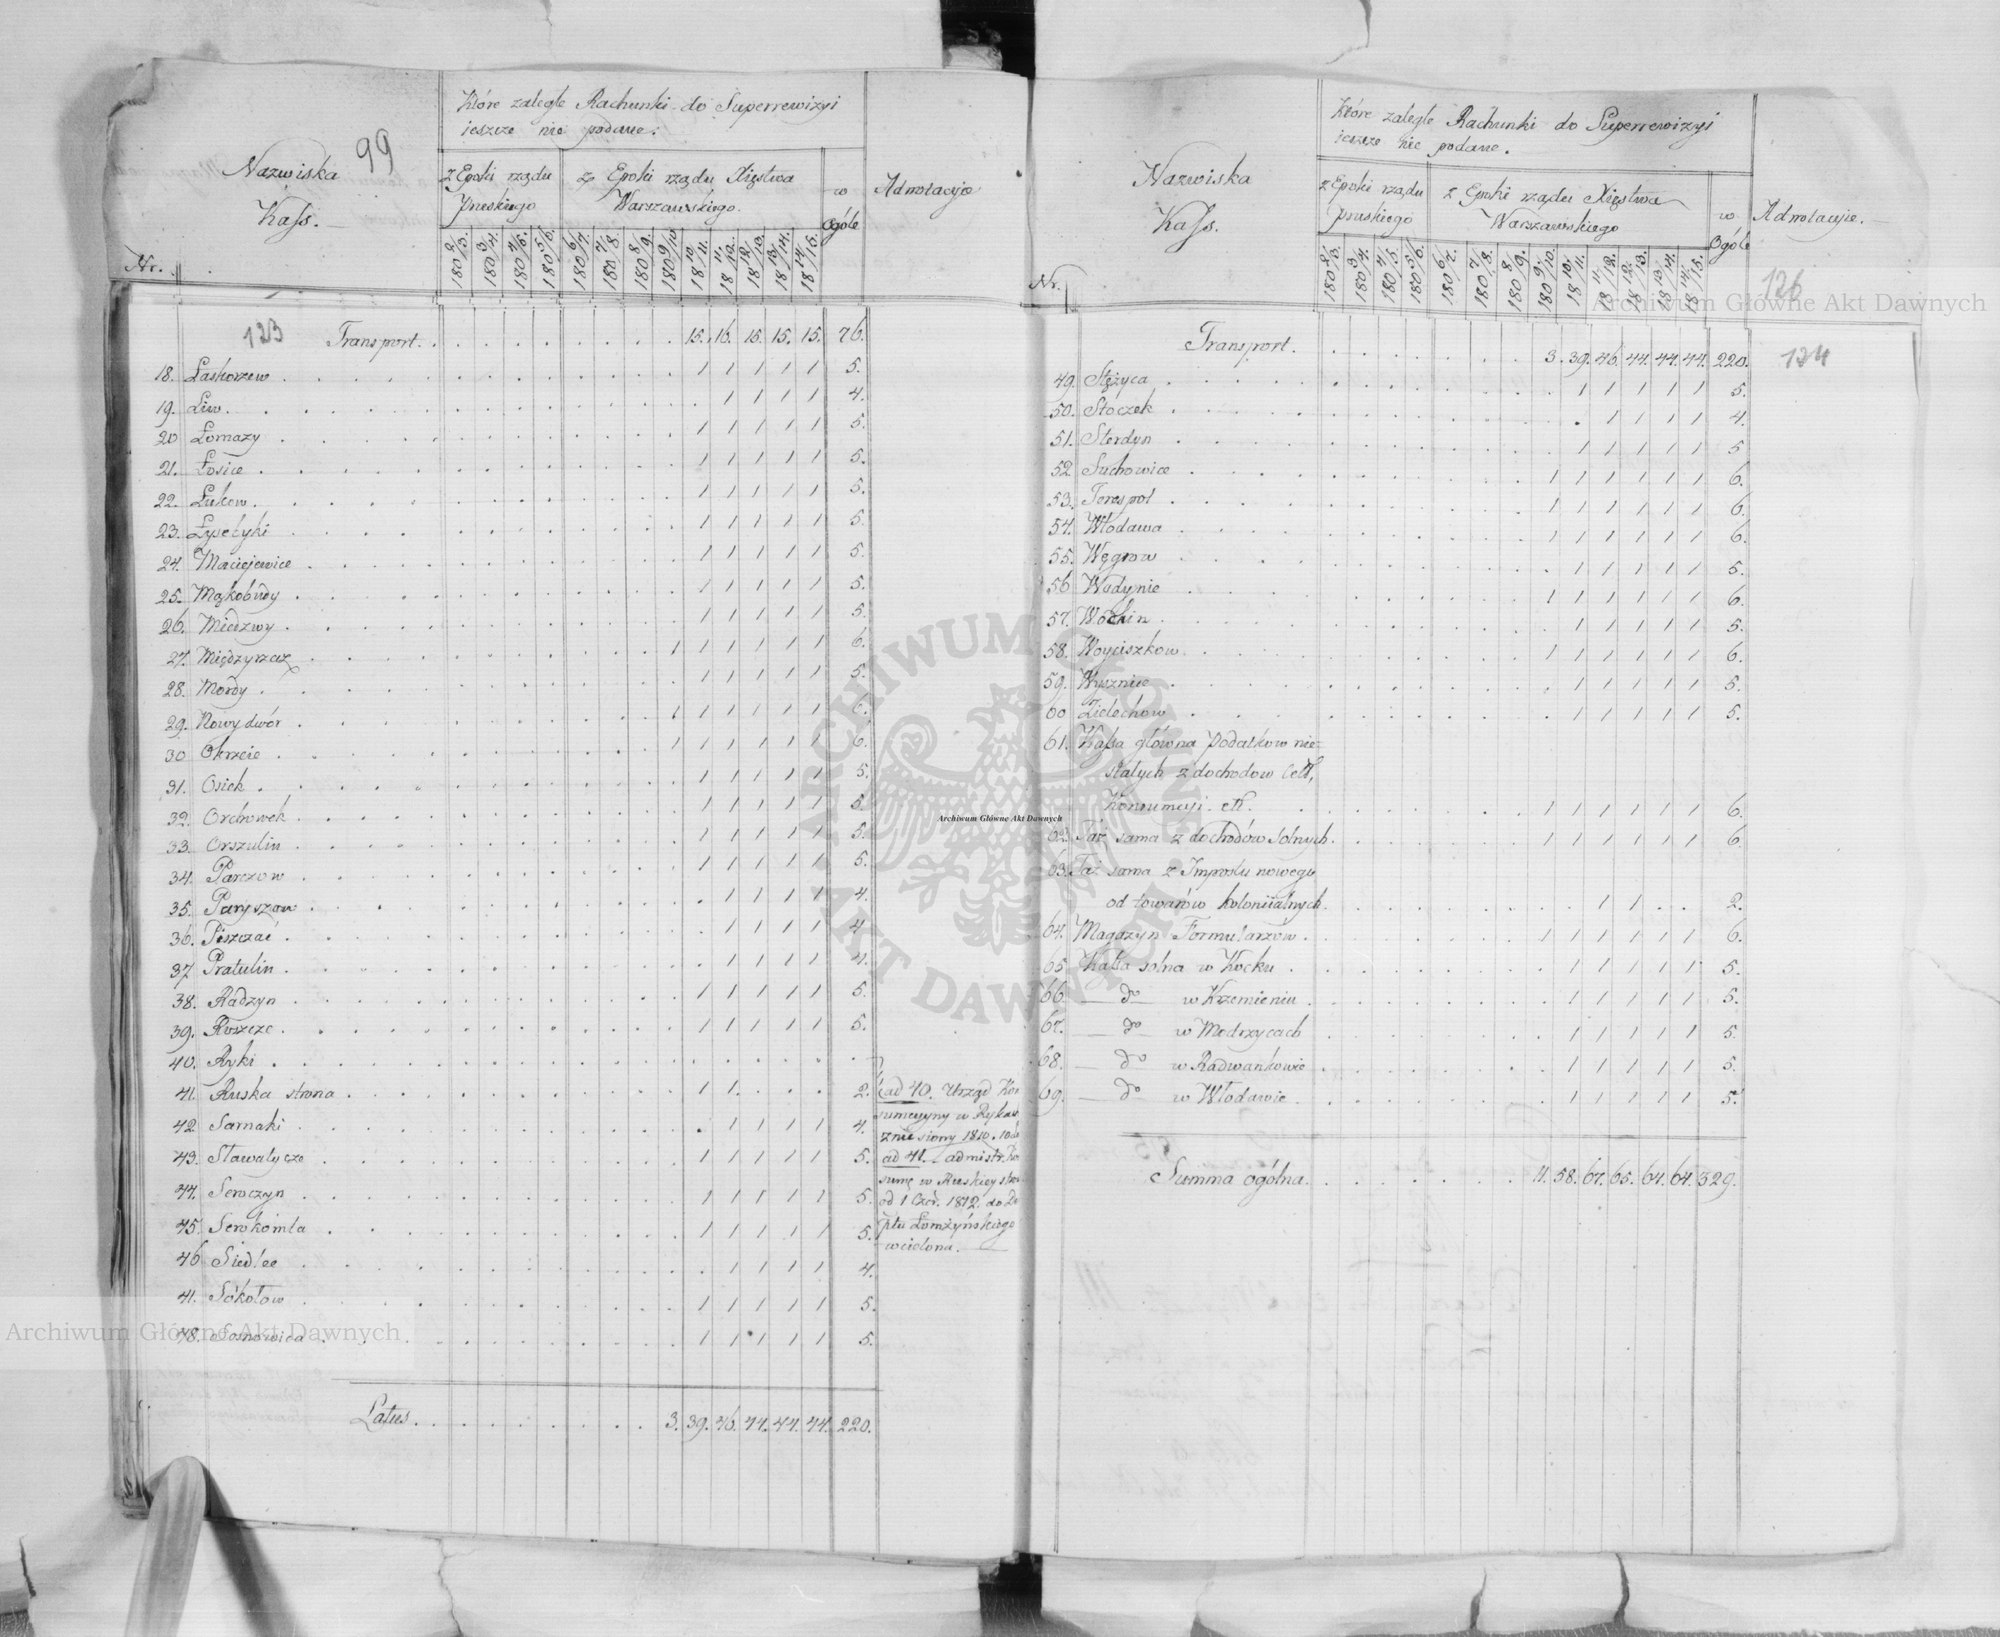 99
Nr.
Nazwiska
Kass.
Które zaległe Rachunki do Superrewizyi
ieszcze nie podane.
z Epoki rządu
Pruskiego
z Epoki rządu Xięstwa
Warszawskiego.
w
Ogóle
Adnotacyie
180 2/3. 180 3/4. 180 4/5. 180 5/6. 180 6/7. 180 7/8. 180 8/9. 180 9/10 18 10/11. 18 11/12. 18 12/13. 18 13/14. 18 14/15.
123
Transport. 15. 16. 15. 15. 15. 76.
18. Łaskorzew 1 1 1 1 1 5.
19. Liw. 1 1 1 1 4.
20 Łomazy 1 1 1 1 1 5.
21. Łosice 1 1 1 1 1 5.
22. Łukow. 1 1 1 1 1 5.
23. Łysobyki 1 1 1 1 1 5.
24. Maciejowice 1 1 1 1 1 5.
25. Mąkobudy 1 1 1 1 1 5.
26. Miedzwy 1 1 1 1 1 5.
27. Międzyrzez 1 1 1 1 1 1 6.
28. Mordy 1 1 1 1 1 5.
29. Nowy dwór 1 1 1 1 1 1 6.
30 Okrzeie 1 1 1 1 1 1 6.
31. Osiek 1 1 1 1 1 5.
32. Orchowek 1 1 1 1 1 5.
33. Orszulin 1 1 1 1 1 5.
34. Parczow 1 1 1 1 1 5.
35. Paryszow 1 1 1 1 4.
36. Piszczać 1 1 1 1 4
37 Pratulin 1 1 1 1 4.
38. Radzyn 1 1 1 1 1 5.
39. Roszcze. 1 1 1 1 1 5.
40. Ryki
41. Ruska strona 1 1 2.
42 Sarnaki 1 1 1 1 4.
43. Sławatycze 1 1 1 1 1 5.
44. Seroczyn 1 1 1 1 1 5.
45. Serokomla 1 1 1 1 1 5.
46 Siedlce 1 1 1 1 4.
41. Sokołow 1 1 1 1 1 5.
48. Sosnowica 1 1 1 1 1 5.
ad 40. Urząd Kon
sumcyyny w Rykach
zniesiony 1810.
ad 41. admistr. Ko
sumę w Ruskiey stro
od 1 Czer. 1812 do De
ptu Łomżyńskiego
wcielona.
Latus. 3. 39. 46. 44. 44. 44. 220.
Nr.
Nazwiska
Kass.
Które zaległe Rachunki do Superrewizyi
ieszcze nie podane.
z Epoki rządu
pruskiego
z Epoki rządu Xięstwa
Warszawskiego
w
Ogóle
Adnotacyie.
180 2/3. 180 3/4. 180 4/5. 180 5/6. 180 6/7. 180 7/8. 180 8/9. 180 9/10. 18 10/11. 18 11/12. 18 12/13. 18 13/14. 18 14/15.
126
Transport. 3. 39. 46. 44. 44. 44. 220.
124
49. Stężyca 1 1 1 1 1 5.
50. Stoczek 1 1 1 1 4.
51. Sterdyn 1 1 1 1 1 5
52 Suchowice 1 1 1 1 1 1 6.
53. Terespol 1 1 1 1 1 1 6.
54. Włodawa 1 1 1 1 1 1 6.
55. Węgrow 1 1 1 1 1 5.
56 Wodynie 1 1 1 1 1 1 6.
57. Wohin 1 1 1 1 1 5.
58. Woyciszkow 1 1 1 1 1 1 6.
59. Wysznice 1 1 1 1 1 5.
60 Zielechow 1 1 1 1 1 5.
61. Kassa główna Podatkow nie=
stałych z dochodow Ceł,
Konsumcyi. ett. 1 1 1 1 1 1 6.
62. Taż sama z dochodów Solnych. 1 1 1 1 1 1 6
63. Taż sama z Impostu nowego
od towarów kolonialnych. 1 1 2.
64. Magazyn Formularzów 1 1 1 1 1 1 6.
65 Kassa solna w Kocku 1 1 1 1 1 5.
66. do w Krzemieniu 1 1 1 1 1 5.
67. do w Modrzycach 1 1 1 1 1 5.
68. do w Radwankowie 1 1 1 1 1 5.
69. do w Włodawie 1 1 1 1 1 5.
Summa ogólna. 11. 58. 67. 65. 64. 64. 329.
Archiwum Główne Akt Dawnych
Archiwum Główne Akt Dawnych
Archiwum Główne Akt Dawnych
ARCHIWUM GŁÓWNE
AKT DAWNYCH